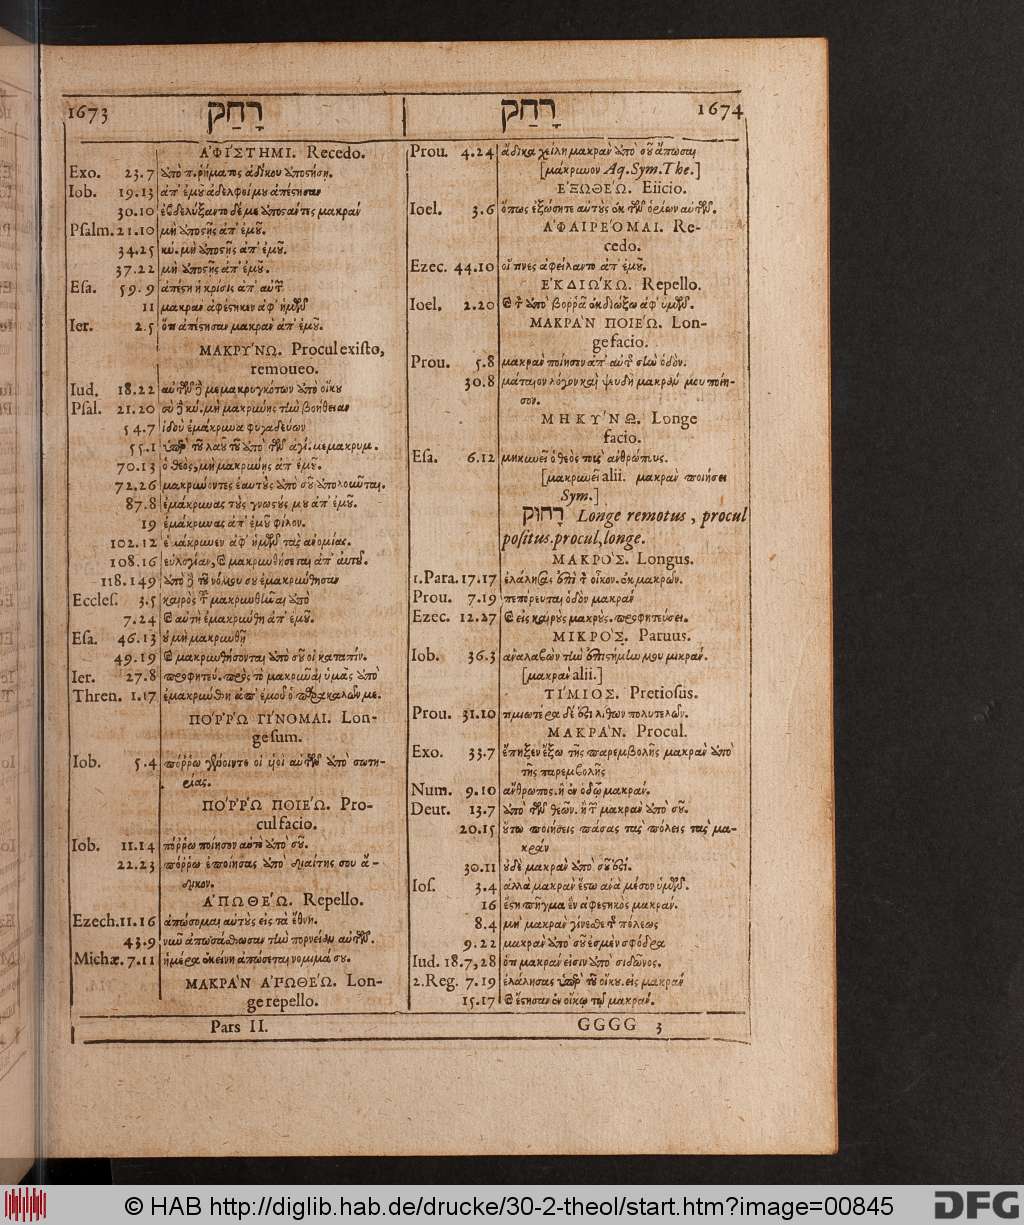 1673 רָחַק
ἈΦΊΣΤΗΜΙ. Recedo.
Exo. 23.7 ἀπὸ π. ῥήματος ἀδίκου ἀποστήση.
Iob. 19.13 ἀπ' ἐμοῦ ἀδελφοί μου ἀπέστησαν
30.10 ἐβδελύξαντο δέ με ἀποστάντες μακρὰν
Psalm. 21.10 μὴ ἀποστῇς ἀπ' ἐμοῦ.
34.25 κύ. μὴ ἀποστῇς ἀπ' ἐμοῦ.
37.22 μὴ ἀποστῇς ἀπ' ἐμοῦ.
Esa. 59.9 ἀπέστη ἡ κρίσις ἀπ' αὐτῶν
11 μακρὰν ἀφέστηκεν ἀφ' ἡμῶν
Ier. 2.5 ὅτι ἀπέστησαν μακρὰν ἀπ' ἐμοῦ.
ΜΑΚΡΎΝΩ. Procul existo,
remoueo.
Iud. 18.22 αὐτῶν δὲ μεμακρυγκότων ἀπὸ οἴκου
Psal. 21.20 σὺ δὲ κύ. μὴ μακρύνῃς τὴν βοήθειαν
54.7 ἰδοὺ ἐμάκρυνα φυγαδεύων
55.1 ὑπὲρ τοῦ λαοῦ τοῦ ἀπὸ τῶν ἁγί. μεμακρυμ.
70.13 ὁ θεὸς, μὴ μακρύνῃς ἀπ' ἐμοῦ.
72.26 μακρύνοντες ἑαυτοὺς ἀπὸ σοῦ ἀπολοῦνται.
87.8 ἐμάκρυνας τοὺς γνωστούς μου ἀπ' ἐμοῦ.
19 ἐμάκρυνας ἀπ' ἐμοῦ φίλον.
102.12 ἐμάκρυνεν ἀφ' ἡμῶν τὰς ἀνομίας.
108.16 εὐλογίαν, καὶ μακρυνθήσεται ἀπ' αὐτοῦ.
118.149 ἀπὸ δὲ τοῦ νόμου σου ἐμακρύνθησαν
Eccles. 3.5 καιρὸς τοῦ μακρυνθῆναι ἀπὸ
7.24 καὶ αὐτὴ ἐμακρύνθη ἀπ' ἐμοῦ.
Esa. 46.13 οὐ μὴ μακρυνθῇ
49.19 καὶ μακρυνθήσονται ἀπὸ σοῦ οἱ καταπίν.
Ier. 27.8 προφητεύ. πρὸς τὸ μακρῦναι ὑμᾶς ἀπὸ
Thren. 1.17 ἐμακρύνθη ἀπ' ἐμοῦ ὁ παρακαλῶν με.
ΠΌΡΡΩ ΓΊΝΟΜΑΙ. Lon-
ge sum.
Iob. 5.4 πόρρω γένοιντο οἱ υἱοὶ αὐτῶν ἀπὸ σωτη-
ρίας.
ΠΌΡΡΩ ΠΟΙΈΩ. Pro-
cul facio.
Iob. 11.14 πόρρω ποίησον αὐτὸ ἀπὸ σοῦ.
22.23 πόρρω ἐποίησας ἀπὸ διαίτης σου ἄ-
δικον.
ἈΠΩΘΈΩ. Repello.
Ezech. 11.16 ἀπώσομαι αὐτοὺς εἰς τὰ ἔθνη.
43.9 νῦν ἀπωσάσθωσαν τὴν πορνείαν αὐτῶν.
Michæ. 7.11 ἡμέρα ἐκείνη ἀπώσεται νομιμά σου.
ΜΑΚΡᾺΝ ἈΠΩΘΈΩ. Lon-
ge repello.
Pars II.
רָחַק 1674
Prou. 4.24 ἄδικα χείλη μακρὰν ἀπὸ σοῦ ἄπωσαι
[μάκρυνον Aq. Sym. The.]
ἘΞΩΘΈΩ. Eiicio.
Ioel. 3.6 ὅπως ἐξώσητε αὐτοὺς ἐκ τῶν ὁρίων αὐτῶν.
ἈΦΑΙΡΈΟΜΑΙ. Re-
cedo.
Ezec. 44.10 οἵτινες ἀφείλαντο ἀπ' ἐμοῦ.
ἘΚΔΙΏΚΩ. Repello.
Ioel. 2.20 καὶ τὸν ἀπὸ βορρᾶ ἐκδιώξω ἀφ' ὑμῶν.
ΜΑΚΡᾺΝ ΠΟΙΈΩ. Lon-
ge facio.
Prou. 5.8 μακρὰν ποίησον ἀπ' αὐτῆς σὴν ὁδὸν.
30.8 μάταιον λόγον καὶ ψευδῆ μακράν μου ποίη-
σον.
ΜΗΚΎΝΩ. Longe
facio.
Esa. 6.12 μηκυνεῖ ὁ θεὸς τοὺς ἀνθρώπους.
[μακρυνεῖ alii. μακρὰν ποιήσει
Sym.]
רָחוֹק Longe remotus, procul
positus. procul, longe.
ΜΑΚΡΌΣ. Longus.
1. Para. 17.17 ἐλάλησας ἐπὶ τὸν οἶκον. ἐκ μακρῶν.
Prou. 7.19 πεπόρευται ὁδὸν μακρὰν
Ezec. 12.27 καὶ εἰς καιροὺς μακροὺς. προφητεύσει.
ΜΙΚΡΌΣ. Paruus.
Iob. 36.3 ἀναλαβὼν τὴν ἐπιστήμην μου μικράν.
[μακρὰν alii.]
ΤΊΜΙΟΣ. Pretiosus.
Prou. 31.10 τιμιωτέρα δέ ἐστι λίθων πολυτελῶν.
ΜΑΚΡΆΝ. Procul.
Exo. 33.7 ἔπηξεν ἔξω τῆς παρεμβολῆς μακρὰν ἀπὸ
τῆς παρεμβολῆς
Num. 9.10 ἄνθρωπος. ἢ ἐν ὁδῷ μακράν.
Deut. 13.7 ἀπὸ τῶν θεῶν. ἢ τῶν μακρὰν ἀπὸ σοῦ.
20.15 οὕτω ποιήσεις πάσας τὰς πόλεις τὰς μα-
κρὰν
30.11 οὐδὲ μακρὰν ἀπὸ σοῦ ἐστι.
Ios. 3.4 ἀλλὰ μακρὰν ἔστω ἀνὰ μέσον ὑμῶν.
16 ἔστη πῆγμα ἓν ἀφεστηκὸς μακράν.
8.4 μὴ μακρὰν γίνεσθε τῆς πόλεως
9.22 μακρὰν ἀπὸ σοῦ ἐσμὲν σφόδρα
Iud. 18.7,28 ὅτι μακράν εἰσιν ἀπὸ σιδῶνος.
2. Reg. 7.19 ἐλάλησας ὑπὲρ τοῦ οἴκου. εἰς μακρὰν
15.17 καὶ ἔστησαν ἐν οἴκῳ τῷ μακράν.
GGGG 3
© HAB http://diglib.hab.de/drucke/30-2-theol/start.htm?image=00845
DFG